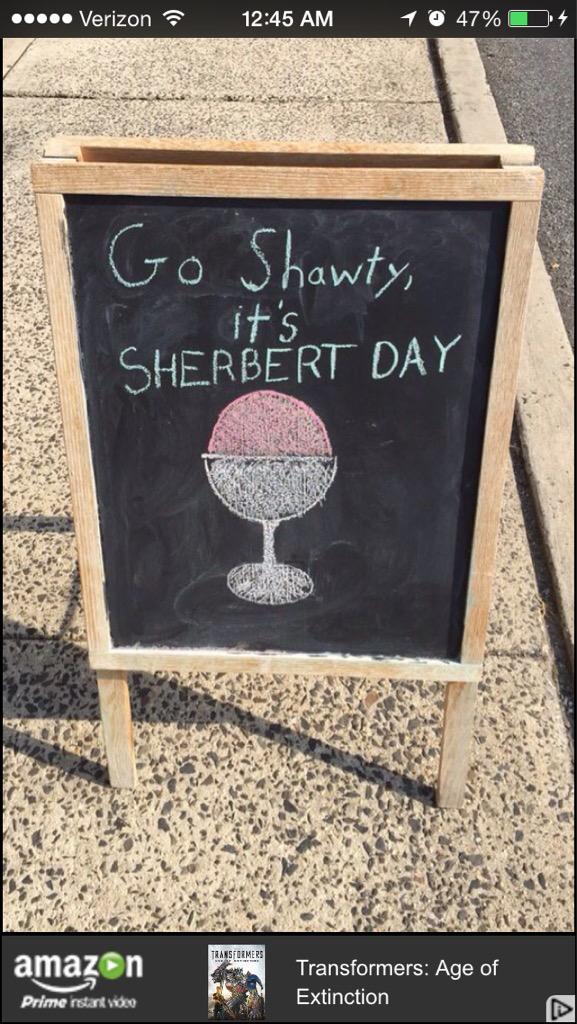 Verizon 12:45 AM 47%
Go Shawty,
it's
SHERBERT DAY
amazon
Prime instant video
TRANSFORMERS
Transformers: Age of
Extinction